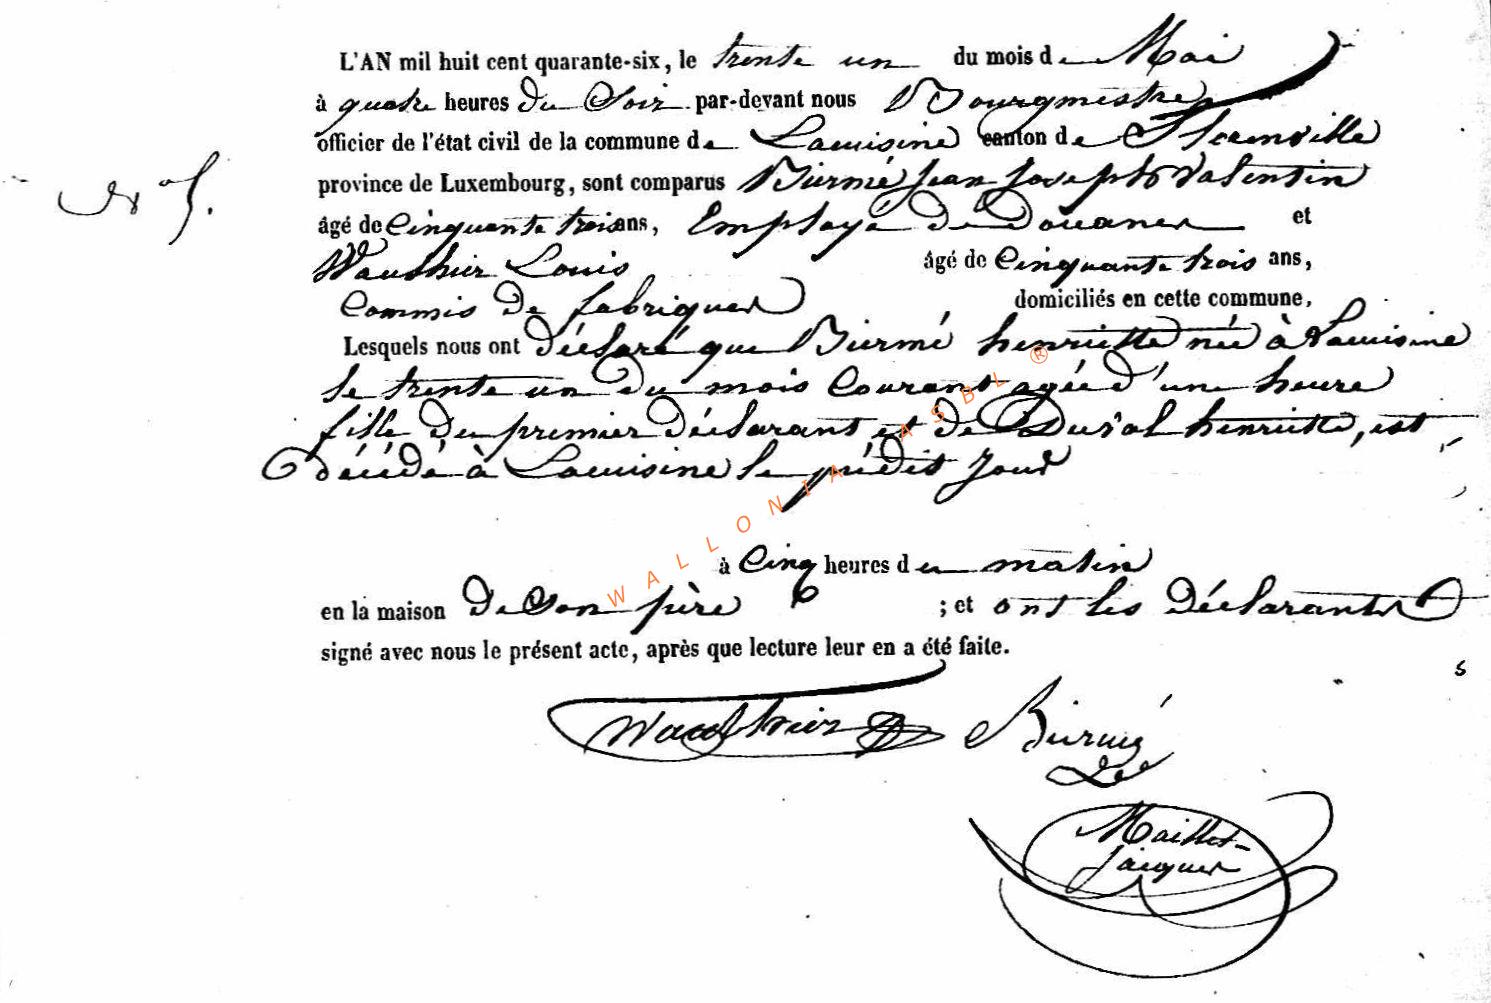 L'AN mil huit cent quarante-six, le trente un du mois de Mai
à quatre heures du Soir par-devant nous Bourgmestre
officier de l'état civil de la commune de Lacuisine canton de Florenville
province de Luxembourg, sont comparus Burmé Jean Joseph Valentin
N° 5.
âgé de Cinquante trois ans, Employé de Douanes et
Wauthier Louis âgé de Cinquante trois ans,
Commis de fabriques domiciliés en cette commune,
Lesquels nous ont déclaré que Burmé henriette née à Lacuisine
le trente un du mois Courant agée d'une heure
fille du premier déclarant et de henriette, est
décédé à Lacuisine le prédit jour
à Cinq heures du matin
en la maison De Son père ; et ont les déclarants
signé avec nous le présent acte, après que lecture leur en a été faite.
Wauthier Burmé
Maillet
Jacques
WALLONIA ASBL ®